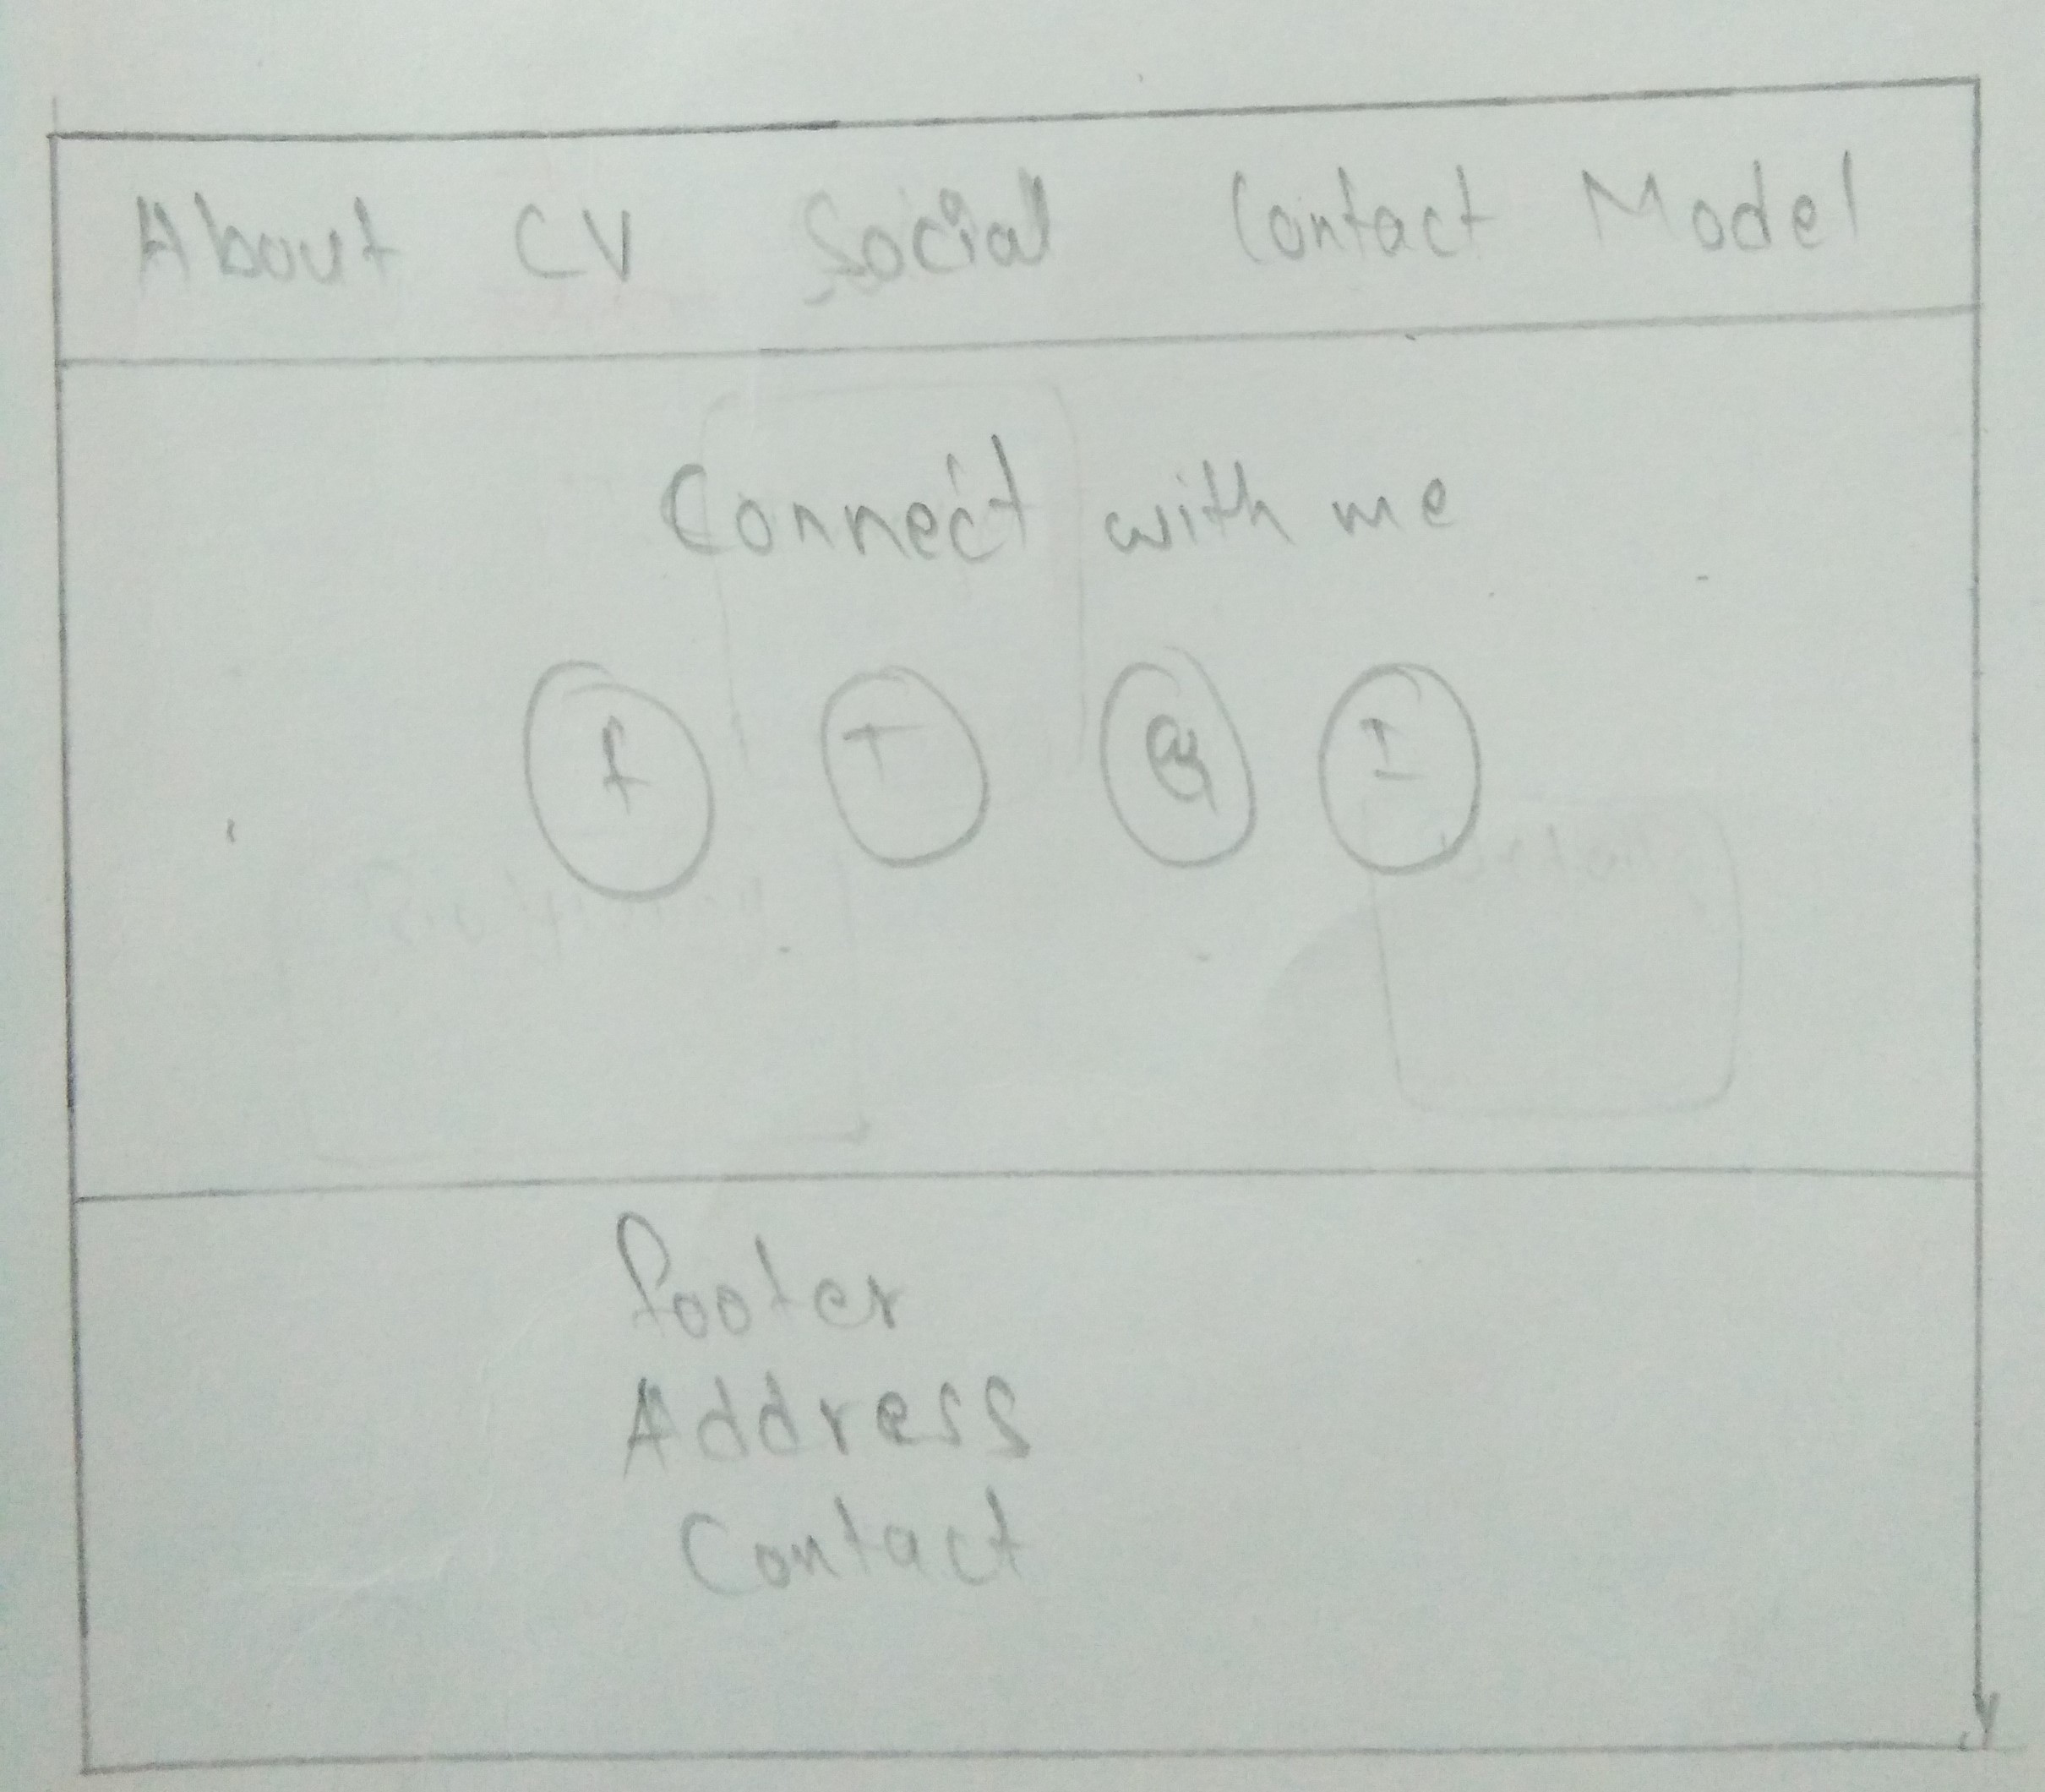 About CV Social Contact Model
Connect with me
f T I
Footer
Address
Contact